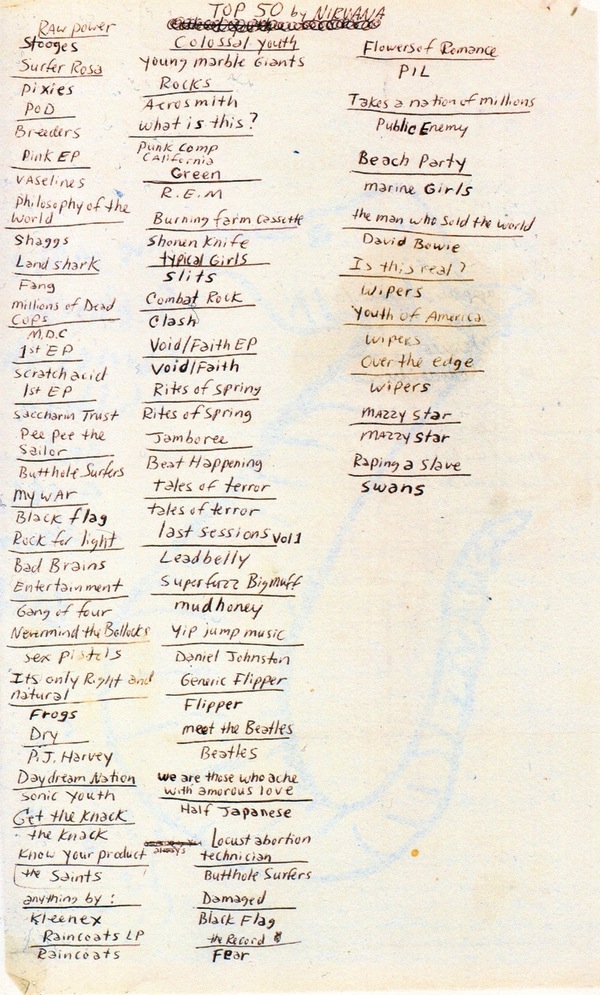 TOP 50 by NIRVANA
Raw power
Stooges
Surfer Rosa
Pixies
POD
Breeders
Pink EP
Vaselines
Philosophy of the
world
Shaggs
Land shark
Fang
millions of Dead
Cops
M.D.C
1st EP
Scratch acid
1st EP
Saccharin Trust
Pee Pee the
Sailor
Butthole Surfers
My War
Black flag
Rock for light
Bad Brains
Entertainment
Gang of four
Nevermind the Bollocks
Sex Pistols
Its only Right and
natural
Frogs
Dry
P.J. Harvey
Daydream Nation
Sonic Youth
Get the Knack
the Knack
Know your product
the Saints
anything by :
Kleenex
Raincoats LP
Raincoats
Colossal Youth
Young marble Giants
Rocks
Aerosmith
What is this?
Punk Comp
California
Green
R.E.M
Burning farm Cassette
Shonen Knife
typical Girls
Slits
Combat Rock
Clash
Void/Faith EP
Void/Faith
Rites of Spring
Rites of Spring
Jamboree
Beat Happening
tales of terror
tales of terror
last sessions vol 1
Leadbelly
Superfuzz Bigmuff
mudhoney
Yip jump music
Daniel Johnston
Generic Flipper
Flipper
meet the Beatles
Beatles
we are those who ache
with amorous love
Half Japanese
always
Locust abortion
technician
Butthole Surfers
Damaged
Black Flag
the Record
Fear
Flowers of Romance
PIL
Takes a nation of millions
Public Enemy
Beach Party
marine Girls
the man who sold the world
David Bowie
Is this real?
Wipers
Youth of America
Wipers
Over the edge
Wipers
Mazzy Star
Mazzy Star
Raping a Slave
Swans